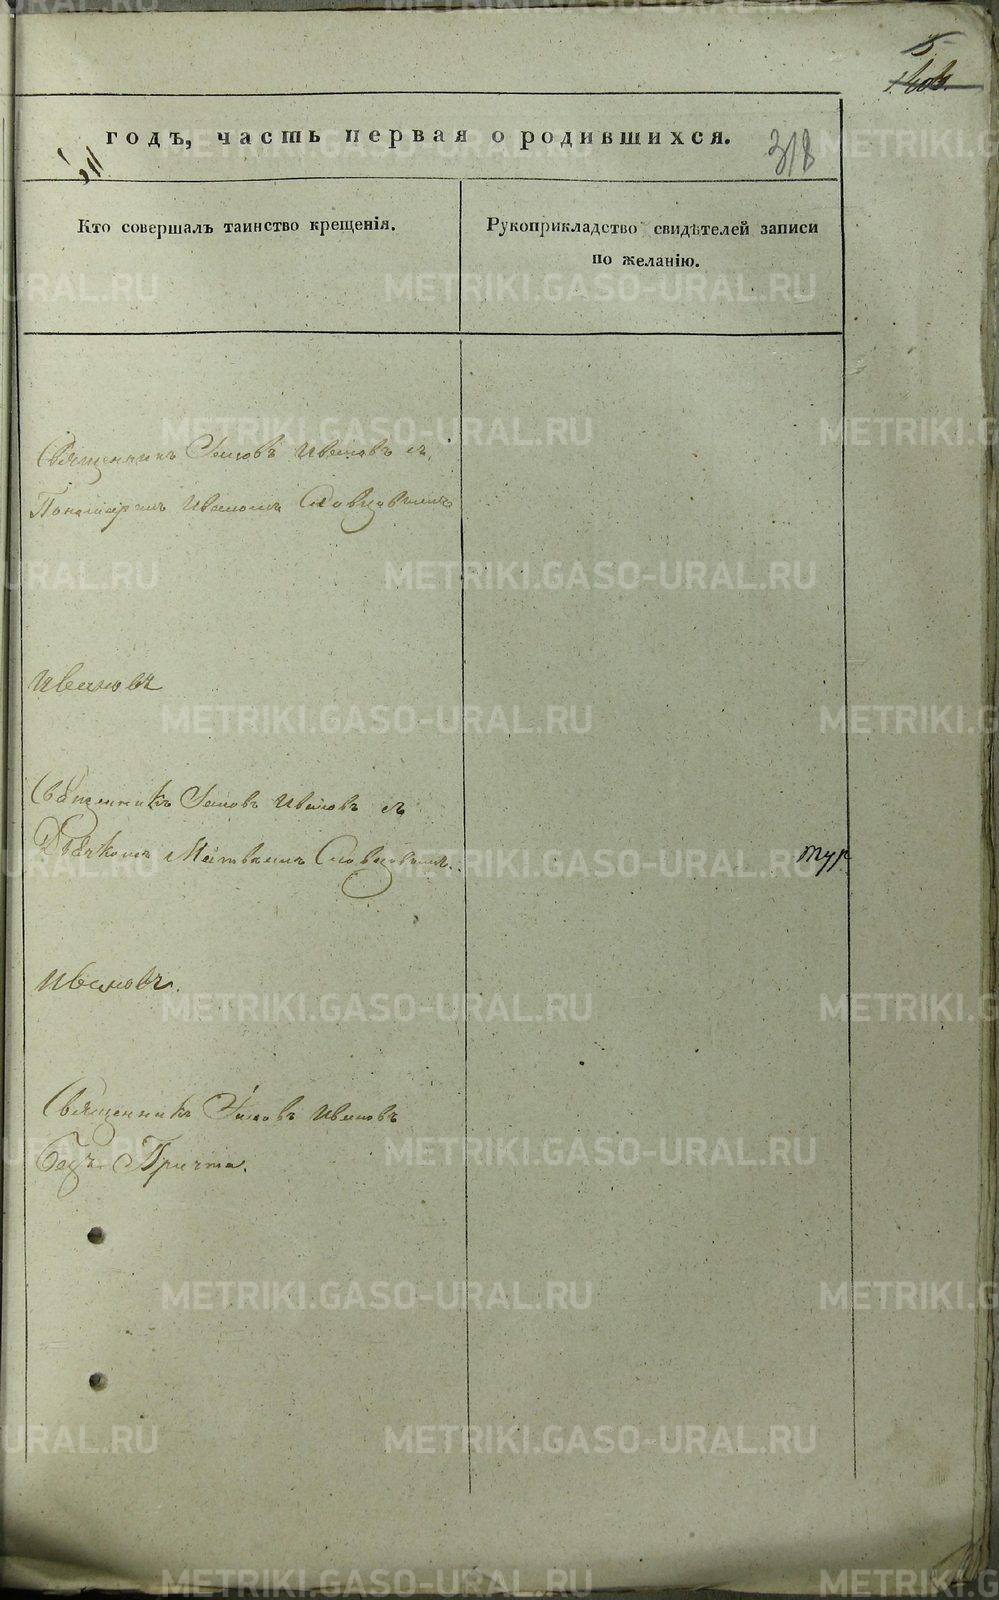 годъ, часть первая о родившихся.
318
Кто совершалъ таинство крещенія.
Рукоприкладство свидѣтелей записи
по желанію.
Священникъ Іаковъ Ивановъ съ
Понамаремъ Иваномъ Словцовымъ
Ивановъ
Священникъ Іаковъ Ивановъ съ
Дьячкомъ Матвѣемъ Словцовымъ.
Ивановъ.
Священникъ Іаковъ Ивановъ
безъ Причта.
METRIKI.GASO-URAL.RU